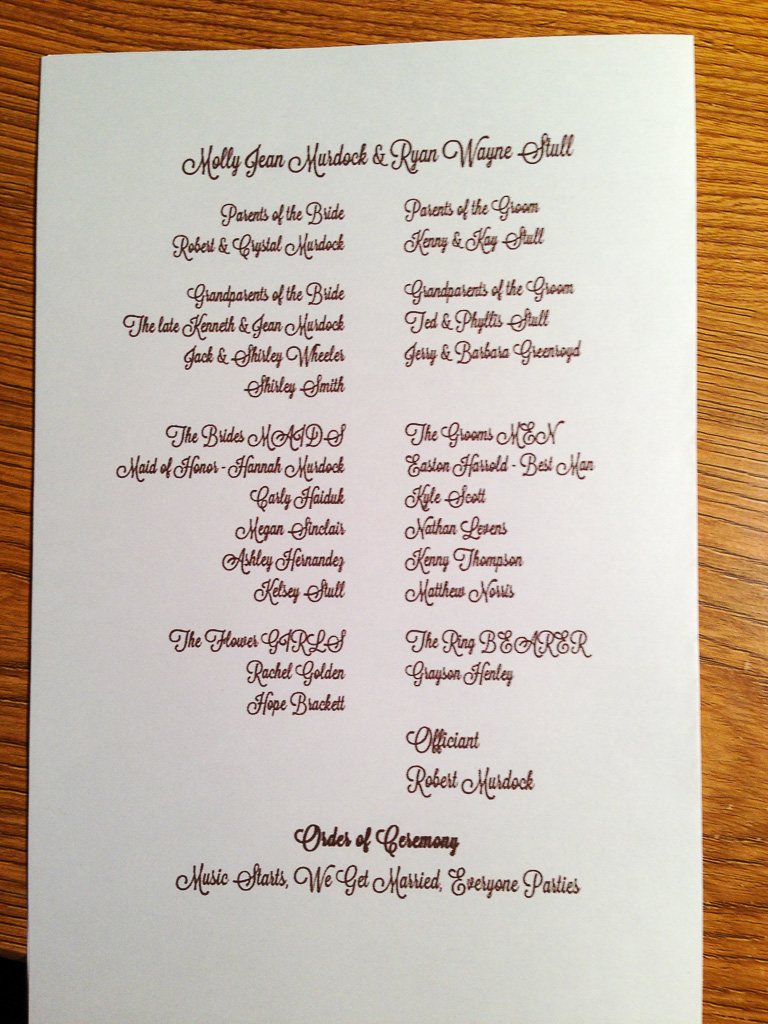 Molly Jean Murdock & Ryan Wayne Stull
Parents of the Bride
Robert & Crystal Murdock
Parents of the Groom
Kenny & Kay Stull
Grandparents of the Bride
The late Kenneth & Jean Murdock
Jack & Shirley Wheeler
Shirley Smith
Grandparents of the Groom
Ted & Phyllis Stull
Jerry & Barbara Greenroyd
The Brides MAIDS
Maid of Honor - Hannah Murdock
Carly Haiduk
Megan Sinclair
Ashley Hernandez
Kelsey Stull
The Grooms MEN
Easton Harrold - Best Man
Kyle Scott
Nathan Levens
Kenny Thompson
Matthew Norris
The Flower GIRLS
Rachel Golden
Hope Brackett
The Ring BEARER
Grayson Henley
Officiant
Robert Murdock
Order of Ceremony
Music Starts, We Get Married, Everyone Parties